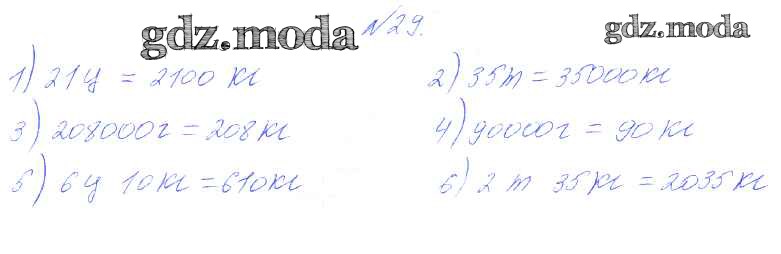 gdz.moda №29. gdz.moda
1) 21ц = 2100 кг 2) 35т = 35000кг
3) 208000г = 208кг 4) 90000г = 90кг
5) 6ц 10кг = 610кг 6) 2т 35кг = 2035кг